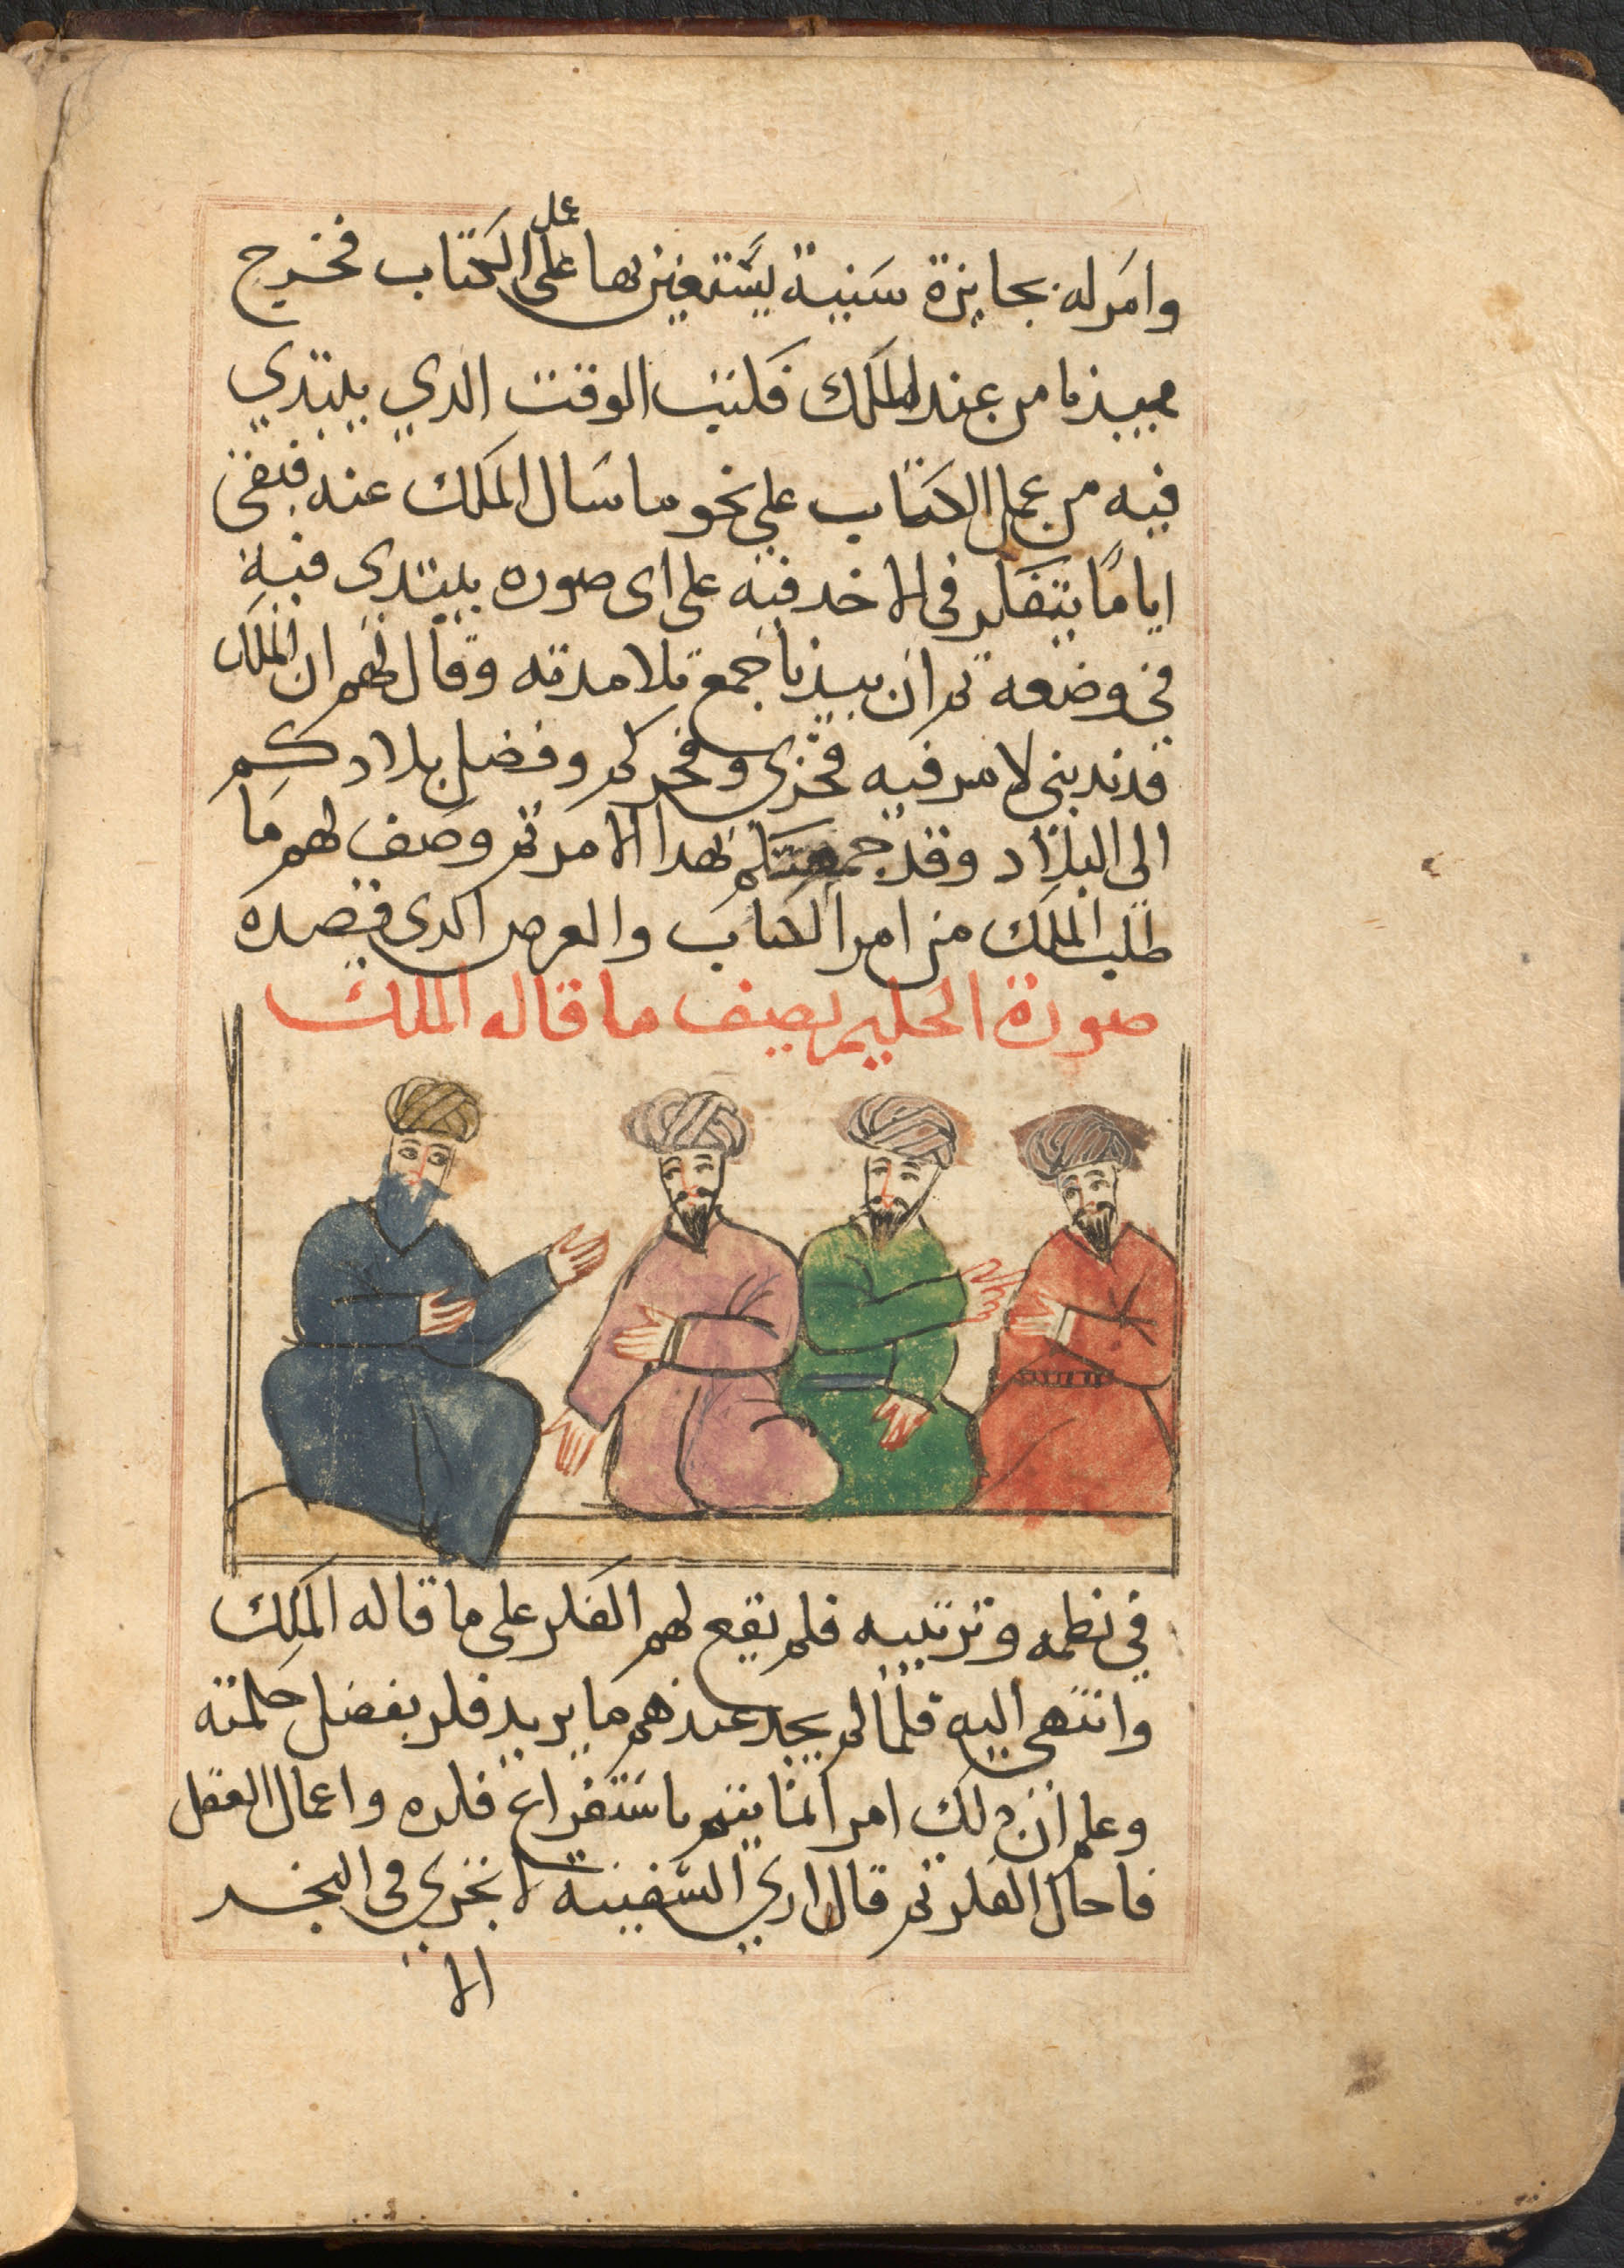 عمل
وامر له بجايزة سنية يستعين بها على الكتاب فخرج
بيدبا من عند الملك فكتب الوقت الدي يبتدي
فيه من عمل الكتاب على نحو ما سال الملك عنه فبقى
اياما يتفكر فى الاخد فيه على اى صوره يبتدى فيه
في وضعه ثم ان بيدبا جمع تلامدته وقال لهم ان الملك
قد ندبنى لامر فيه فخرى وفخركم وفضل بلادكم
الى البلاد وقد جمعتكم لهدا الامر ثم وصف لهم ما
طلب الملك من امر الكتاب والعرص الدى قصده
صورة الحكيم يصف ما قاله الملك
في نظمه وترتيبه فلم يقع لهم الفكر على ما قاله الملك
وانتهى اليه فلما لم يجد عندهم ما يريد فكر بفضل حكمته
وعلم ان دلك امر انما يتم باستفراغ فكره واعمال العقل
فاحال الفكر ثم قال ارى السفينة لا تجرى فى البحر
الا